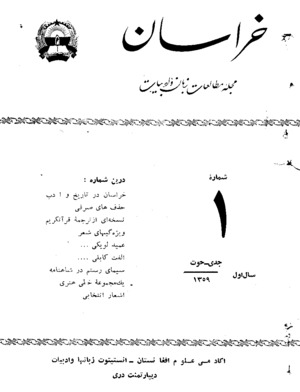 خراسان
مجلهٔ مطالعات زبان و ادبیات
شمارهٔ
۱
جدی-حوت
۱۳۵۹
سال اول
درین شماره :
خراسان در تاریخ و ادب
حذف های صرفی
نسخه‌ای از ترجمهٔ قرآنکریم
ویژه گیهای شعر
عمید لویکی ...
الفت کابلی ....
سیمای رستم در شاهنامه
یک مجموعهٔ خطی هنری
اشعار انتخابی
اکادمی علوم افغانستان - انستیتوت زبانها و ادبیات
دیپارتمنت دری